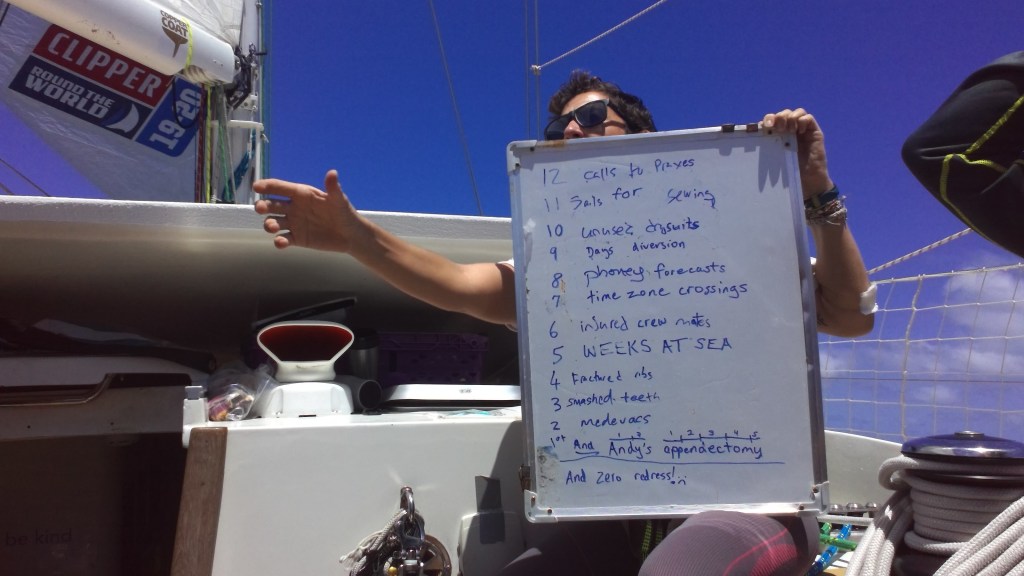 COPPER
COAT
CLIPPER
ROUND THE
WORLD
19
20
12 calls to Praxes
11 Sails for Sewing
10 unused drysuits
9 Days diversion
8 phoney forecasts
7 time zone crossings
6 injured crew mates
5 WEEKS AT SEA
4 Fractured ribs
3 smashed teeth
2 medevacs
1 2 1 2 3 4 5
1st And Andy's appendectomy
And Zero redress!
be kind